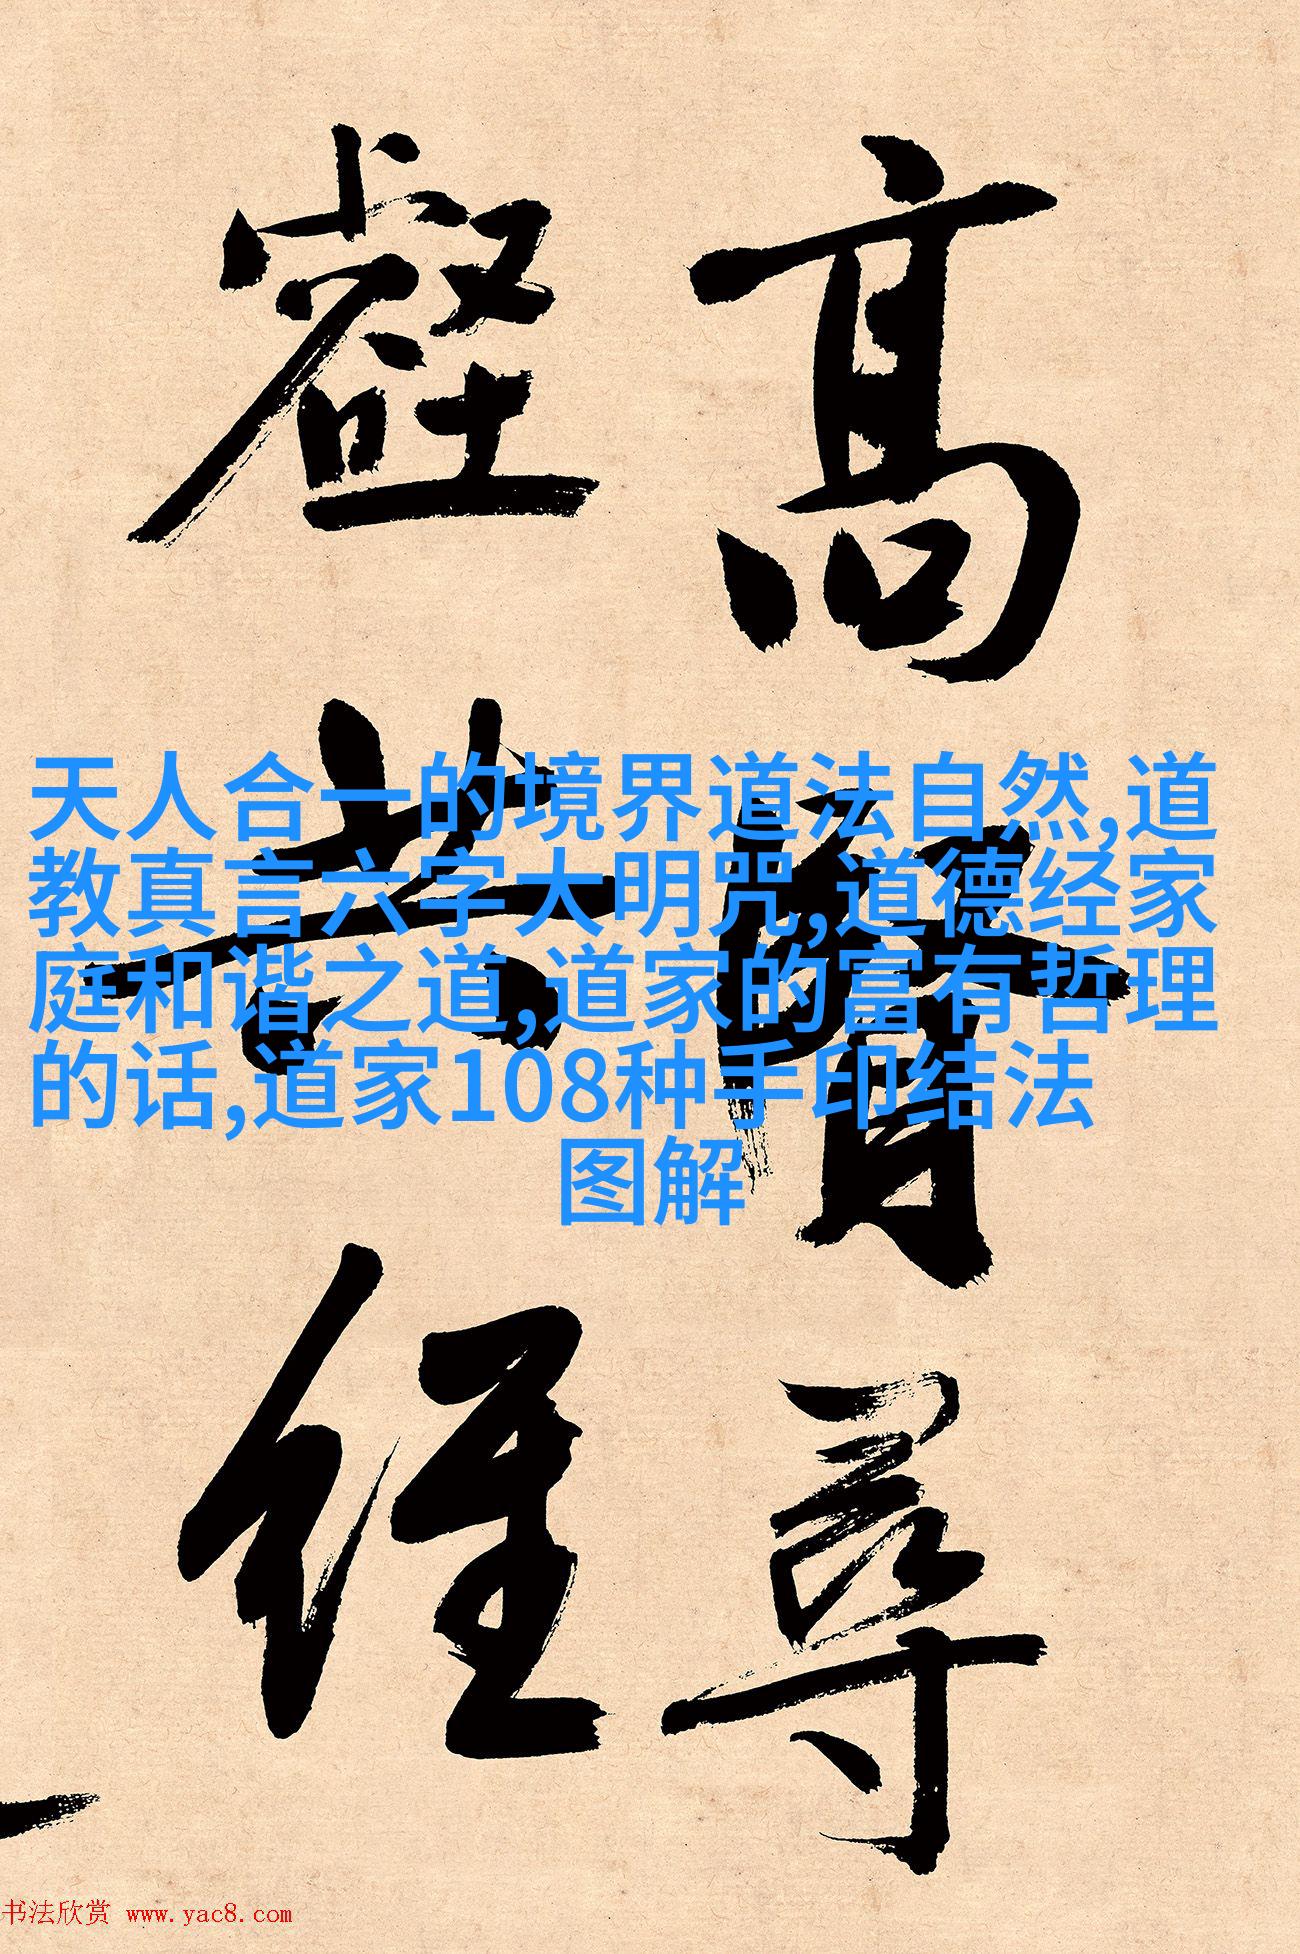 高賢尋
壑共經
天人合一的境界道法自然,道
教真言六字大明咒,道德经家
庭和谐之道,道家的富有哲理
的话,道家108种手印结法
图解
书法欣赏 www.yac8.com